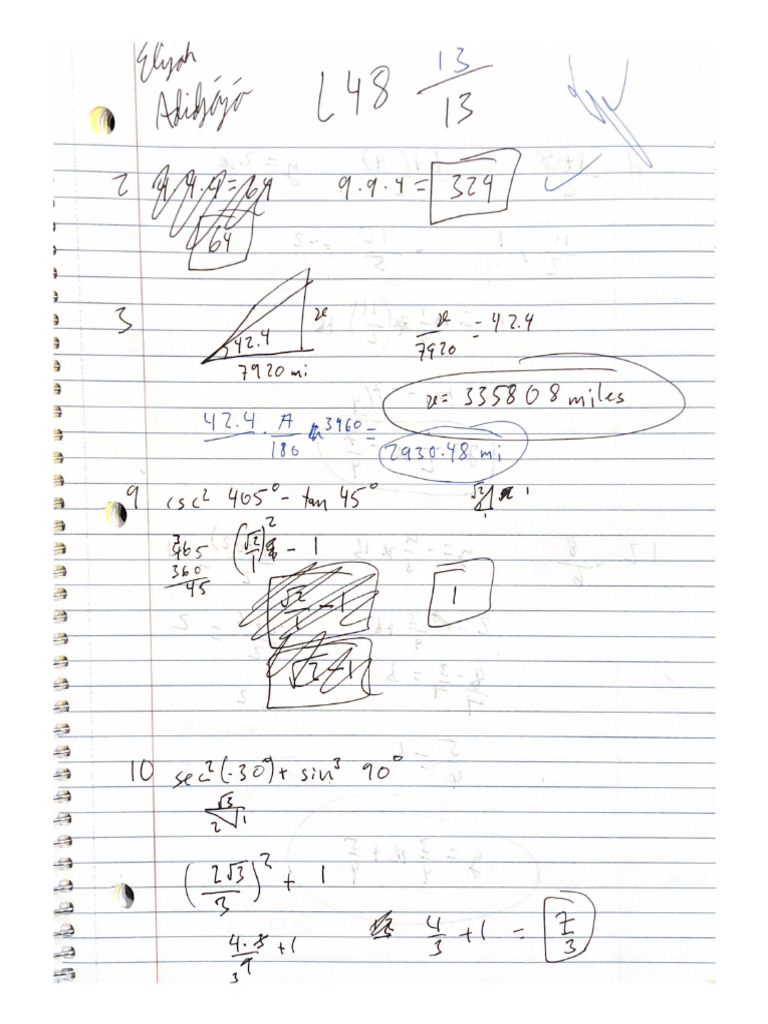 Elijah
L 48 13/13
2 9·9·4 = 324
64
3
42.4
x
7920 mi
x/7920 = 42.4
x = 335808 miles
42.4/ · π/180 · 3960 = 2930.48 mi
9 csc² 405° - tan 45°
√2 1
1
405
360
45
(√2/1)² - 1
1
√2/1 - 1
√2 - 1
10 sec²(-30°) + sin³ 90°
√3
2 1
(2√3/3)² + 1
4·3/9 + 1
3
4/3 + 1 = 7/3